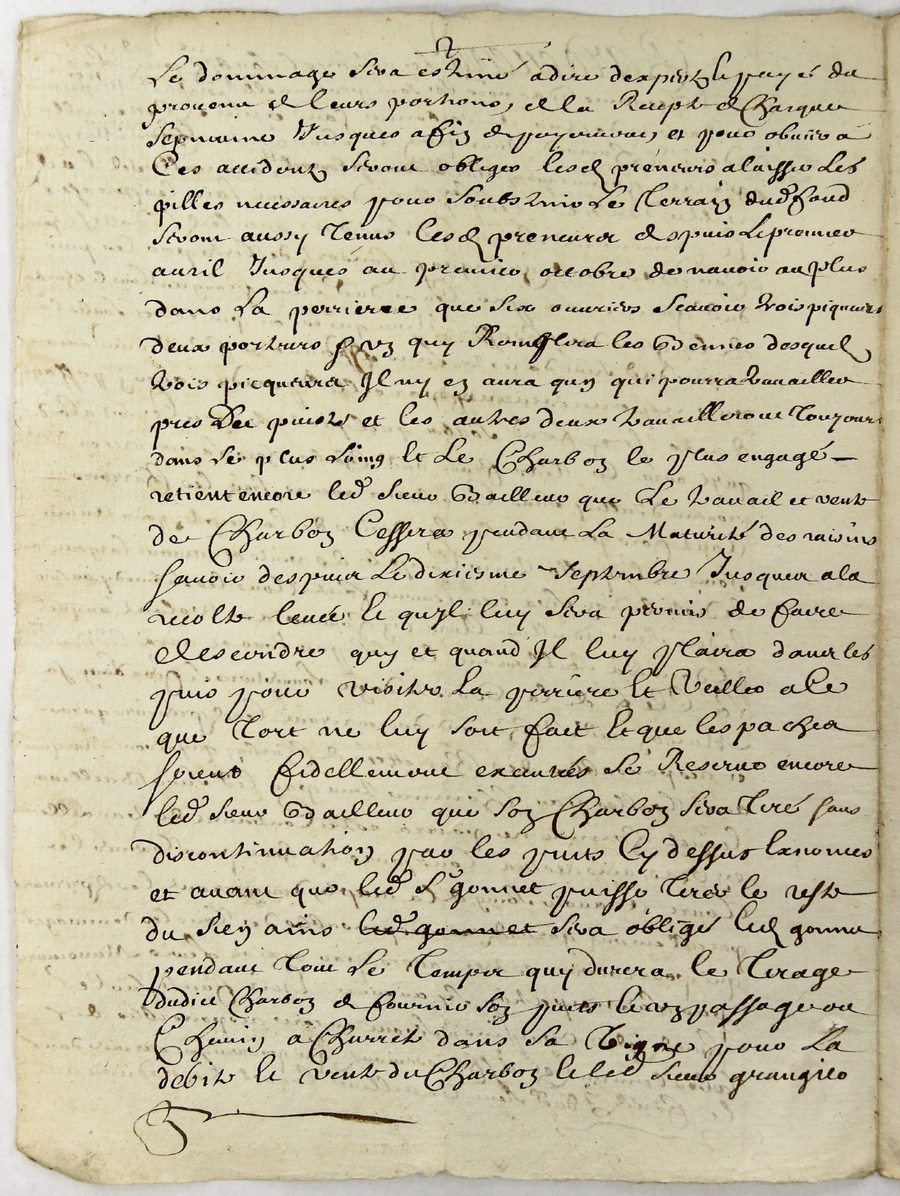 Le dommage sera estimé a dire dexpertz le payé du
provenu de leurs portions, et la Recepte de Chasque
sepmaine Jusques a fin de payement, et pour obvier a
Ces accidentz seront obliges lesd preneurs a laisser Les
pilles necessaires pour soubstenir Le Terrain dud fond
seront aussy Tenus lesd preneurs despuis Le premier
avril Jusques au premier octobre de navoir au plus
dans La perriere que six ouvriers scavoir trois piqueurs
deux porteurs & un quy Remplira les Bennes desquels
trois picqueurs Il ny en aura qun qui pourra travailler
pres du puist et les autres deux travailleront Tousjours
dans le plus loing et Le Charbon le plus engagé
retient encore led sieur Bailleur que Le travail et vente
de Charbon Cessera pendant La Maturité des raisins
scavoir despuis Le dixiesme Septembre Jusques a la
recolte levée et qu'Il luy sera permis de faire
descendre quy et quand Il luy plaira dans les
puis pour visiter La perriere et Veiller a Ce
que Tort ne luy soit fait et que les paches
soient fidellement executés se Reserve encore
led sieur Bailleur que son Charbon sera Tiré sans
discontinuation par les puits Cy dessus Enoncés
et avant que led Sr gonnet puisse Tirer le reste
du sien ains led gonnet sera obligé led gonnet
pendant Tout Le Temps quy durera le Tirage
dudict Charbon de fournir son puits et un passage ou
Chemin a Charrete dans sa Vigne pour La
debite et vente du Charbon et led sieur grangier